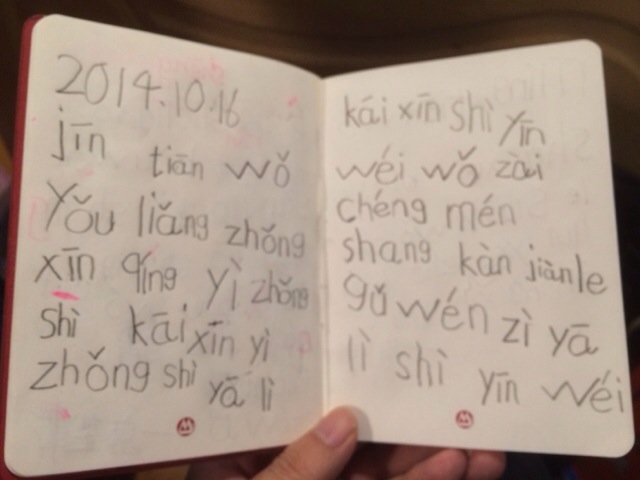 2014.10.16
jīn tiān wǒ
yǒu liǎng zhǒng
xīn qíng yì zhǒng
shì kāi xīn yì
zhǒng shì yā lì
kāi xīn shì yīn
wéi wǒ zài
chéng mén
shang kàn jiàn le
gǔ wén zì yā
lì shì yīn wéi